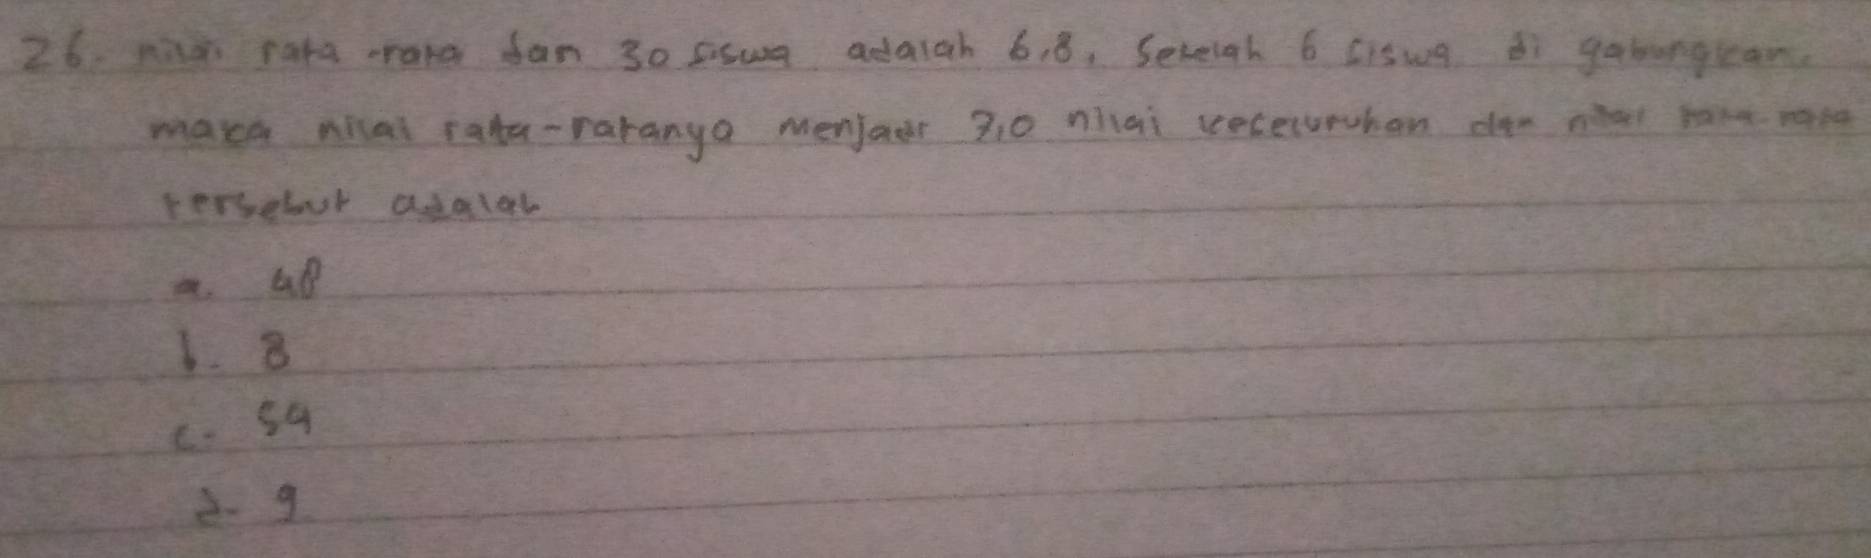 26. nilai rata-rata dan 30 siswa adalah 6,8, setelah 6 siswa di gabungkan.
maka nilai rata-ratanya menjadi 7,0 nilai keseluruhan dan nilai rata-rata
tersebut adalah
a. 48
b. 8
c. 54
d. 9